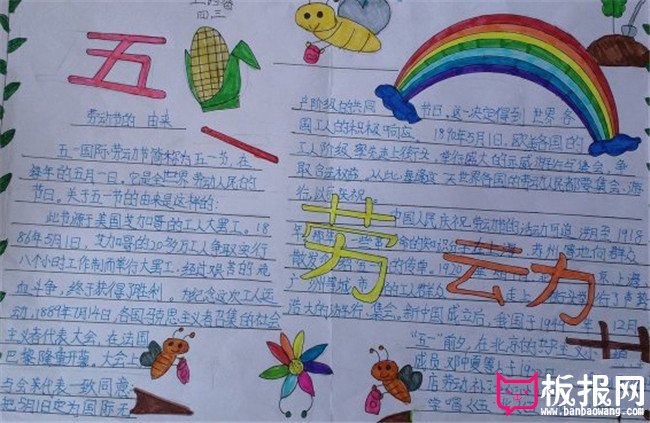 四三
五
劳动节的 由来
五一国际劳动节简称为五一节,在
每年的五月一日。它是全世界劳动人民的
节日。关于五一节的由来是这样的:
此节源于美国芝加哥的工人大罢工。18
86年5月1日,芝加哥的20多万工人争取实行
八个小时工作制而举行大罢工,经过艰苦的流
血斗争,终于获得了胜利。为纪念这次工人运
动,1889年7月14日,各国马克思主义者召集的社会
主义者代表大会,在法国
巴黎隆重开幕。大会上
与会代表一致同意:
把5月1日定为国际无
产阶级的共同 节日。这一决定得到世界各
国工人的积极响应 1890年5月1日,欧美各国的
工人阶级率先走上街头,举行盛大的示威游行与集会,争
取合法权益。从此,每逢这一天世界各国的劳动人民都要集会、游
行,以示庆祝。
中国人民庆祝劳动节的活动可追溯至1918
年 一些 命的知识 上海、苏州 等地向群众
散发 的传单。1920 京、上海
广州 等城市的工人群众 走上 行了声势
浩大的游行、集会。新中国成立后,我国于1949年 12月
“五一”前夕,在北京的共产主义小
成员邓中夏等 19
店劳动补
学唱《五
劳动
板报网
www.banbaowang.com